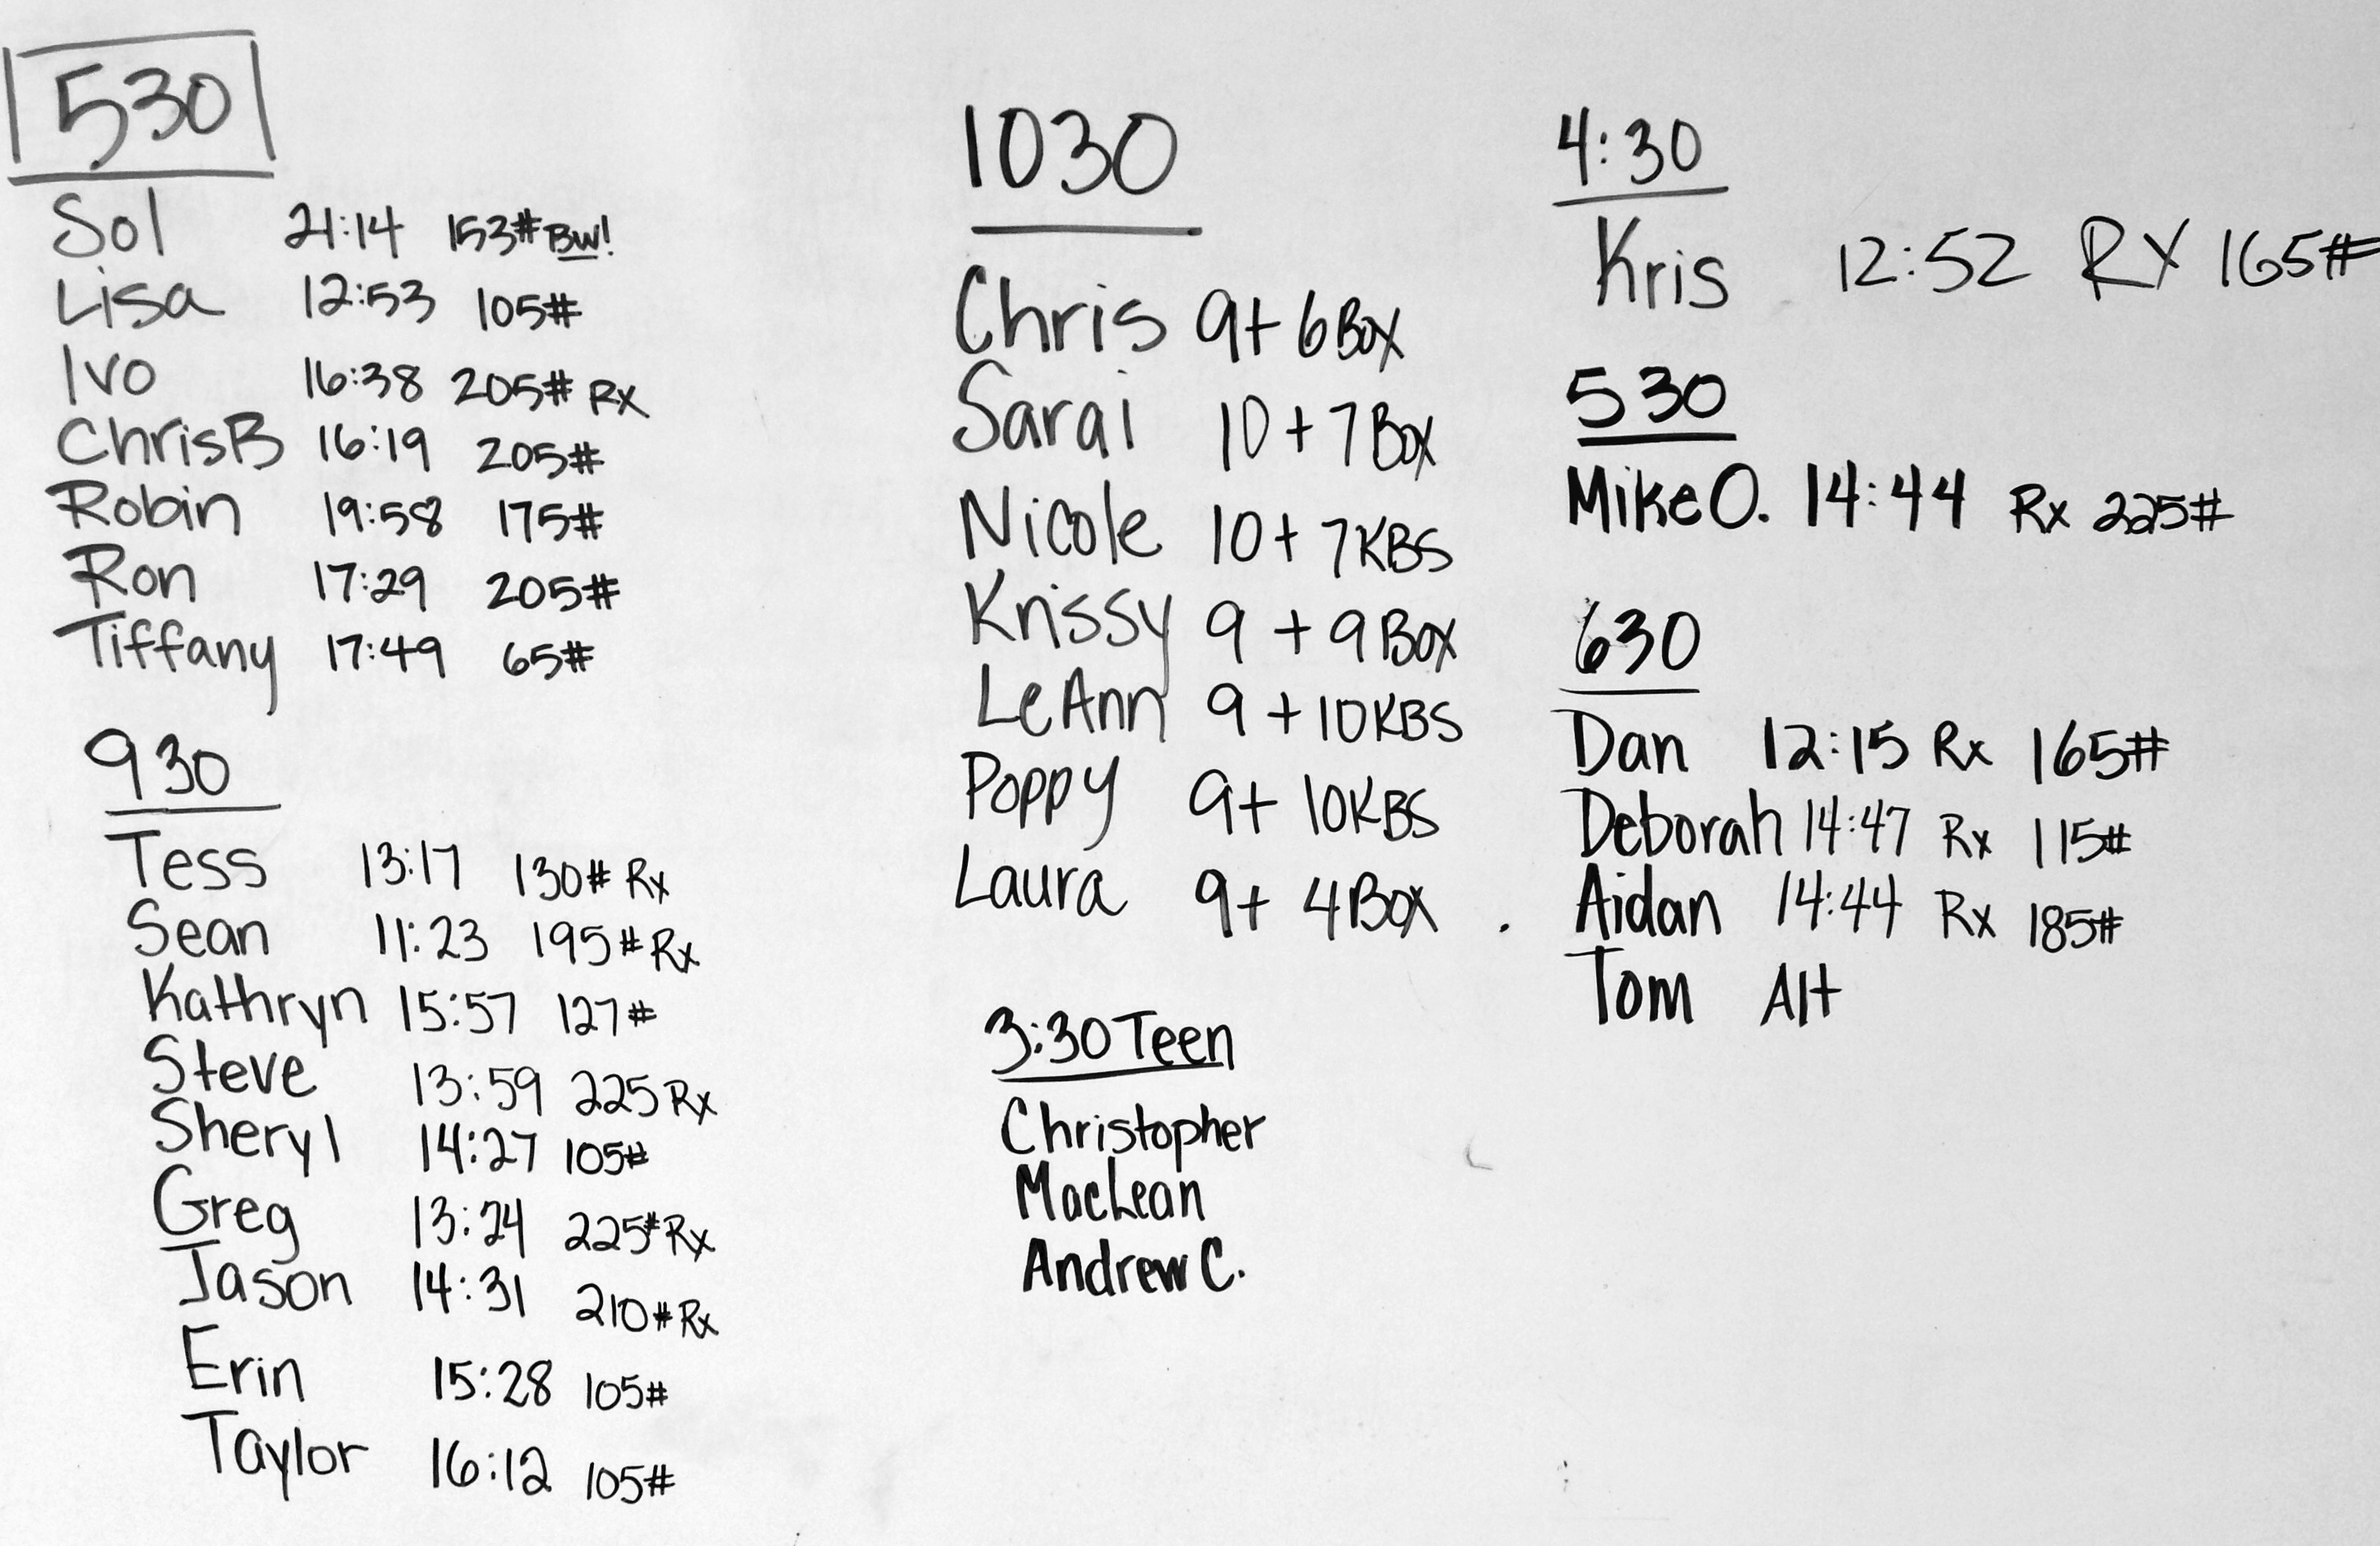 530
Sol 21:14 153# BW!
Lisa 12:53 105#
Ivo 16:38 205# Rx
ChrisB 16:19 205#
Robin 19:58 175#
Ron 17:29 205#
Tiffany 17:49 65#
930
Tess 13:17 130# Rx
Sean 11:23 195# Rx
Kathryn 15:57 127#
Steve 13:59 225 Rx
Sheryl 14:27 105#
Greg 13:24 225# Rx
Jason 14:31 210# Rx
Erin 15:28 105#
Taylor 16:12 105#
1030
Chris 9+ 6 Box
Sarai 10 + 7 Box
Nicole 10 + 7 KBS
Krissy 9 + 9 Box
LeAnn 9 + 10 KBS
Poppy 9+ 10 KBS
Laura 9+ 4 Box
3:30 Teen
Christopher
MacLean
Andrew C.
4:30
Kris 12:52 RX 165#
530
Mike O. 14:44 Rx 225#
630
Dan 12:15 Rx 165#
Deborah 14:47 Rx 115#
Aidan 14:44 Rx 185#
Tom Alt